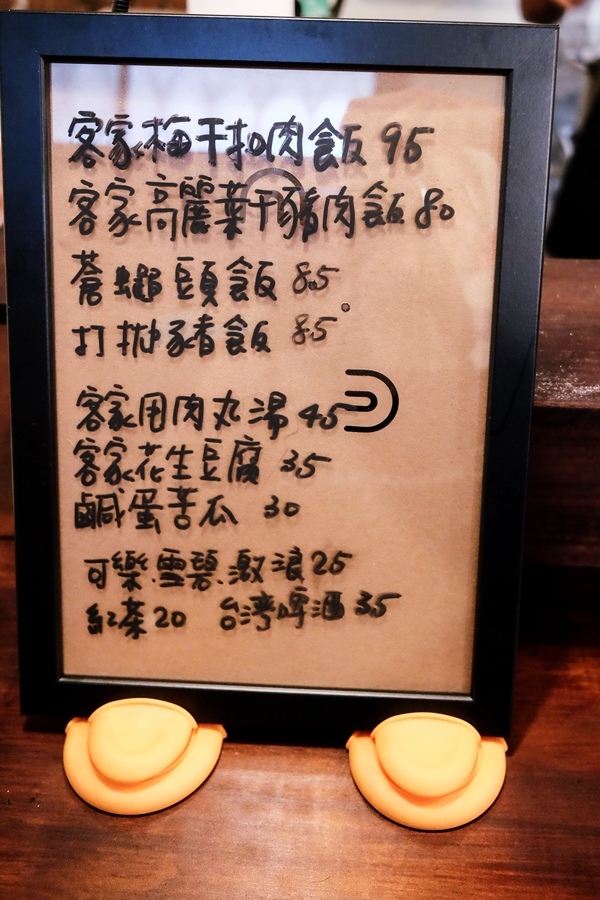 客家梅干扣肉飯 95
客家高麗菜干豬肉飯 80
蒼蠅頭飯 85
打拋豬飯 85
客家甩肉丸湯 45
客家花生豆腐 35
鹹蛋苦瓜 30
可樂.雪碧.激浪 25
紅茶 20 台灣啤酒 35